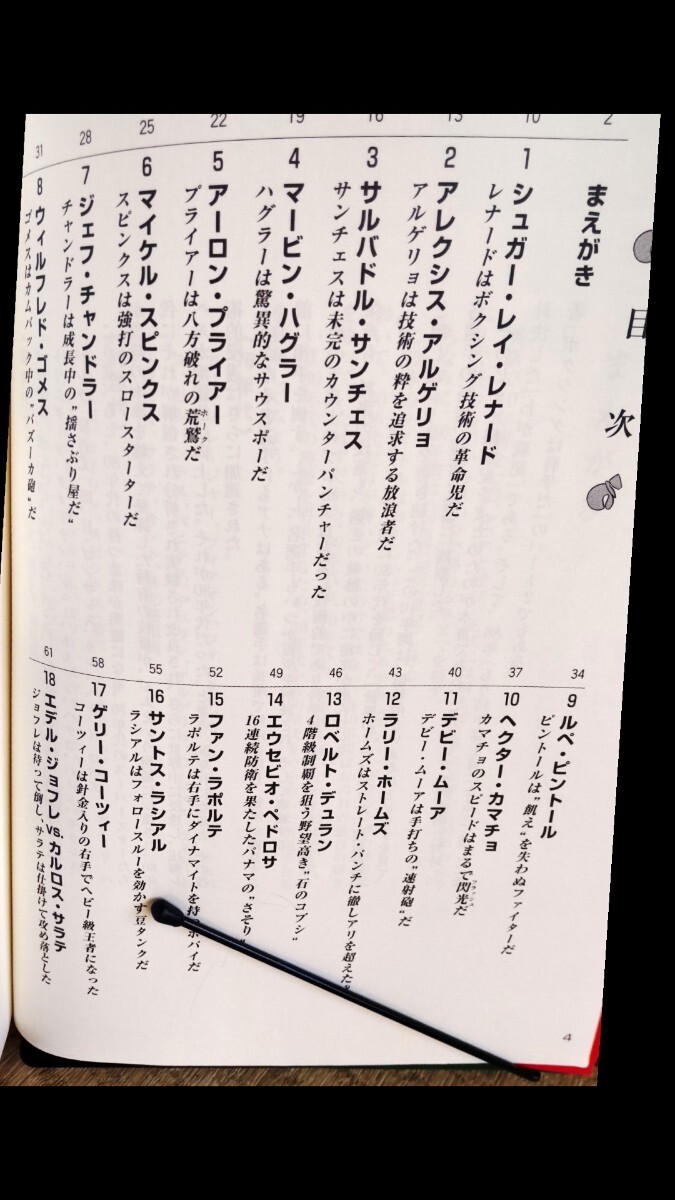 目次
まえがき
2
1 シュガー・レイ・レナード
レナードはボクシング技術の革命児だ
10
2 アレクシス・アルゲリョ
アルゲリョは技術の粋を追求する放浪者だ
13
3 サルバドル・サンチェス
サンチェスは未完のカウンターパンチャーだった
16
4 マービン・ハグラー
ハグラーは驚異的なサウスポーだ
19
5 アーロン・プライアー
プライアーは八方破れの荒鷲だ
ホーク
22
6 マイケル・スピンクス
スピンクスは強打のスロースターターだ
25
7 ジェフ・チャンドラー
チャンドラーは成長中の"揺さぶり屋だ"
28
8 ウィルフレド・ゴメス
ゴメスはカムバック中の"バズーカ砲"だ
31
9 ルペ・ピントール
ピントールは"飢え"を失わぬファイターだ
34
10 ヘクター・カマチョ
カマチョのスピードはまるで閃光だ
フラッシュ
37
11 デビー・ムーア
デビー・ムーアは手打ちの"速射砲"だ
40
12 ラリー・ホームズ
ホームズはストレート・パンチに徹しアリを超えた"
43
13 ロベルト・デュラン
4階級制覇を狙う野望高き"石のコブシ"
46
14 エウセビオ・ペドロサ
16連続防衛を果たしたパナマの"さそり"
49
15 ファン・ラポルテ
ラポルテは右手にダイナマイトを持つポパイだ
52
16 サントス・ラシアル
ラシアルはフォロースルーを効かす豆タンクだ
55
17 ゲリー・コーツィー
コーツィーは針金入りの右手でヘビー級王者になった
58
18 エデル・ジョフレ VS.カルロス・サラテ
ジョフレは待って倒し、サラテは仕掛けて攻め落とした
61
4